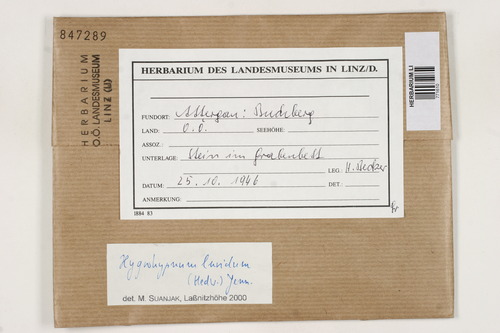 847289
HERBARIUM
O.Ö. LANDESMUSEUM
LINZ (LI)
HERBARIUM LI
HERBARIUM DES LANDESMUSEUMS IN LINZ/D.
FUNDORT: Attergau: Buchberg
LAND: O.Ö. SEEHÖHE:
ASSOZ.
UNTERLAGE: Stein im Grabenbett
LEG.: H. Becker
DATUM: 25. 10. 1946 DET.:
ANMERKUNG:
1884 83
Hygrohypnum luridum
(Hedw.) Jenn.
det. M. SUANJAK, Laßnitzhöhe 2000